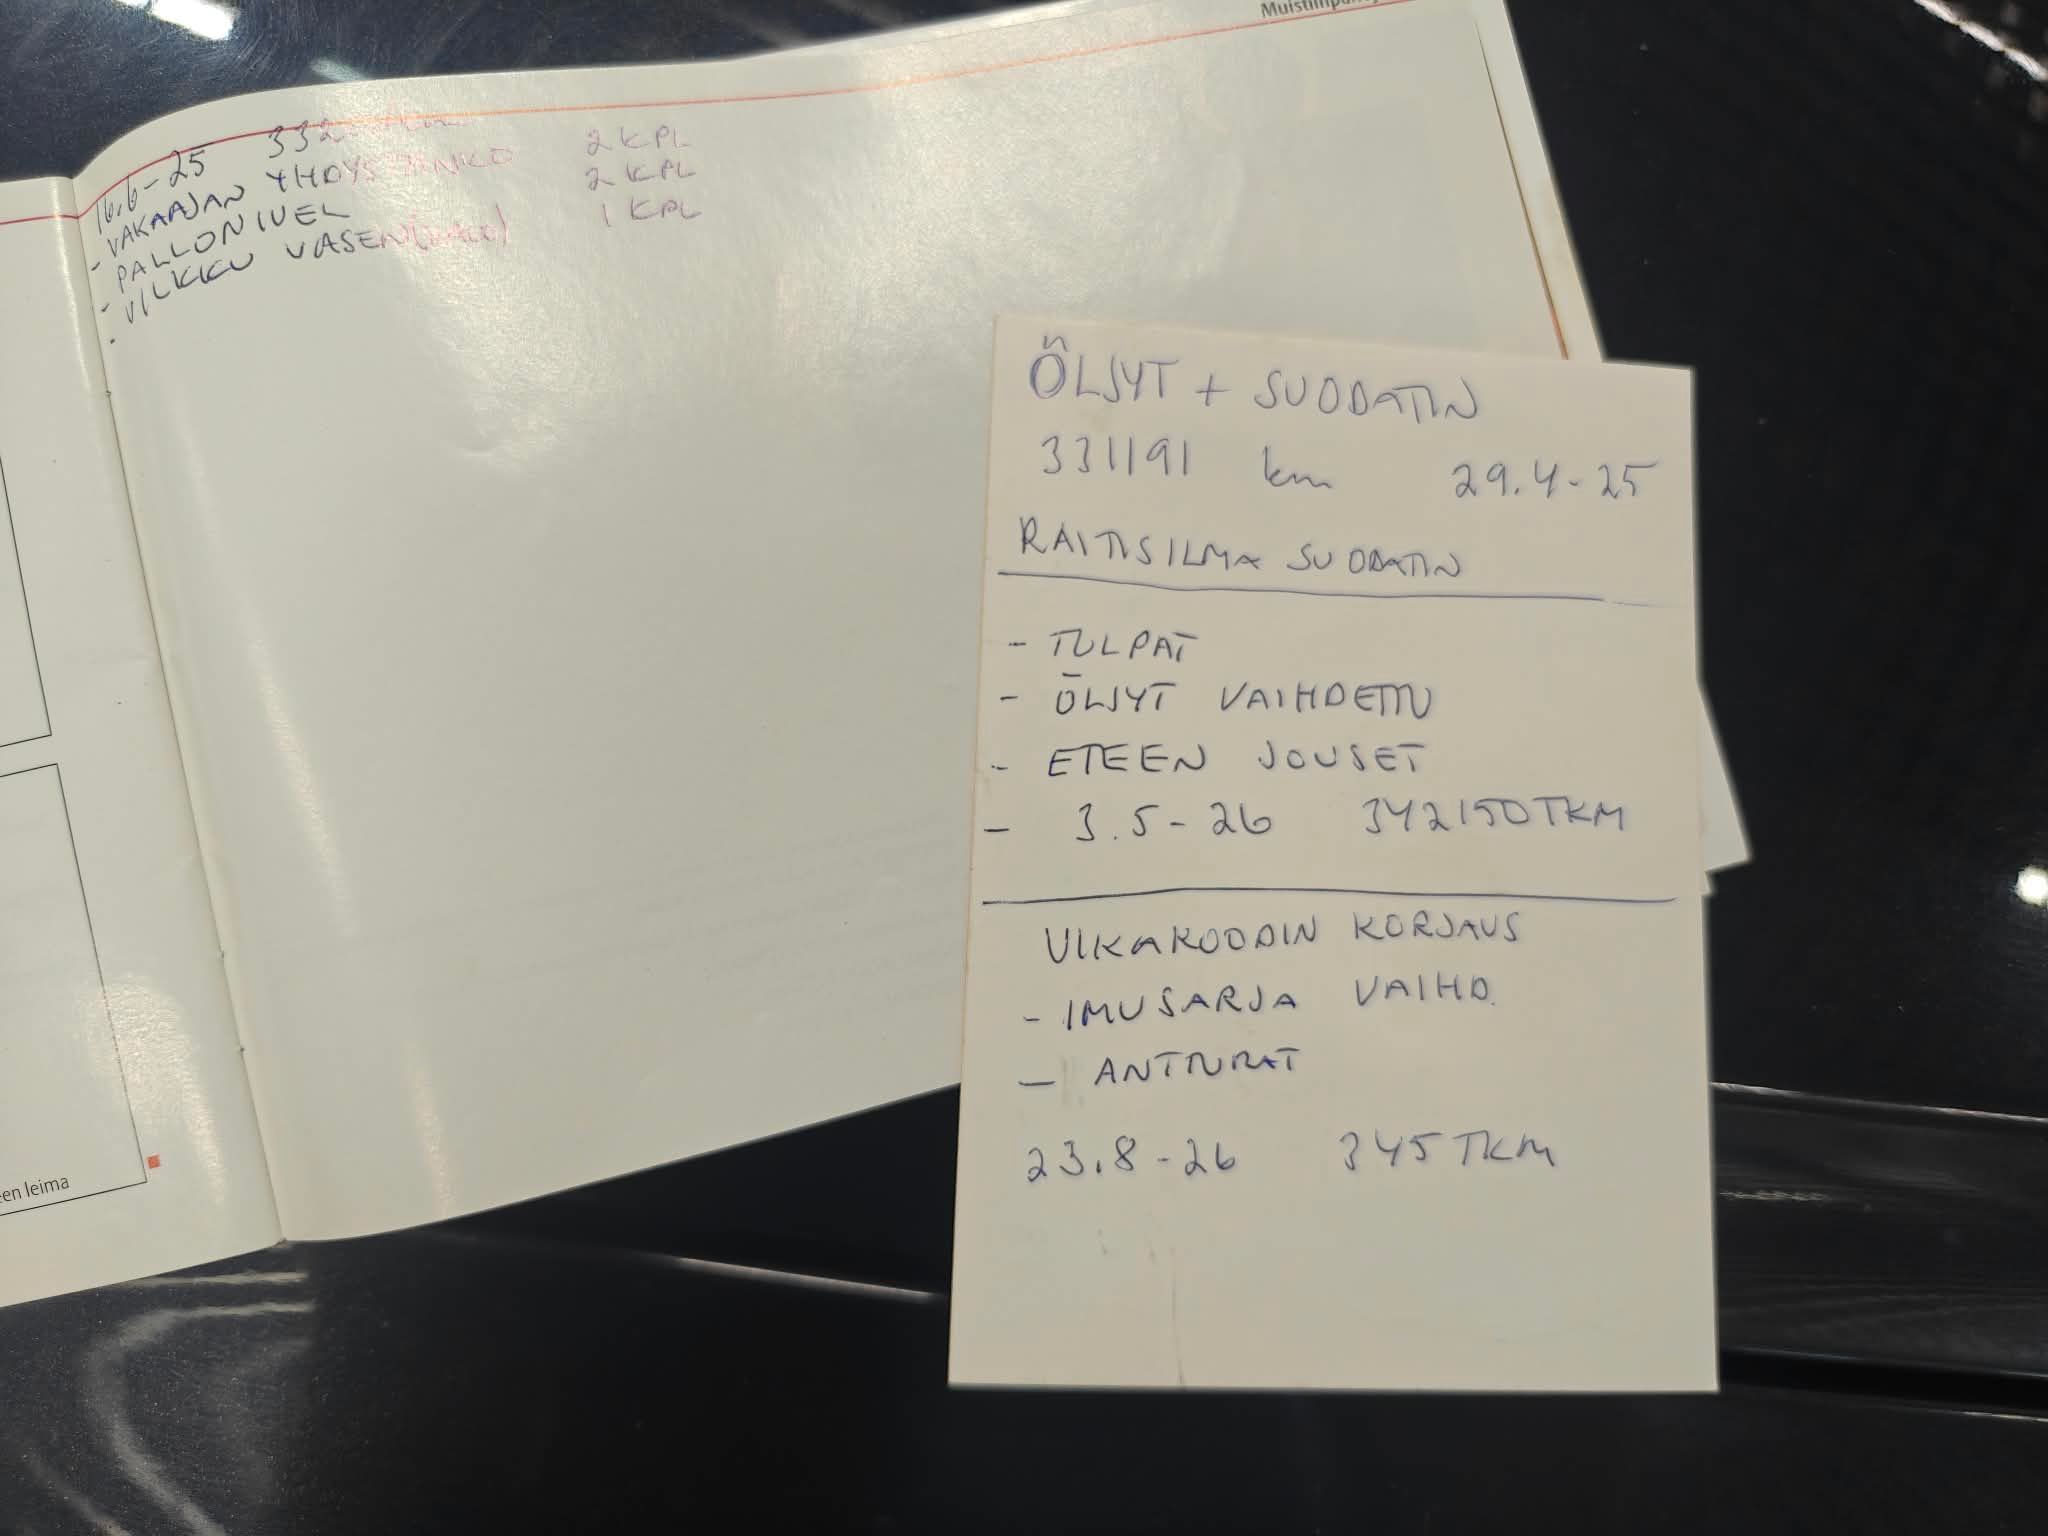 Muistiinpano
16.6-25 332
- VAKAAJAN YHDYSTANKO 2 KPL
- PALLONIVEL 2 KPL
- VILKKU VASEN 1 KPL
een leima
ÖLJYT + SUODATIN
331191 km 29.4-25
RAITISILMA SUODATIN
- TULPAT
- ÖLJYT VAIHDETTU
- ETEEN JOUSET
- 3.5-26 342150TKM
VIKAKOODIN KORJAUS
- IMUSARJA VAIHD.
- ANTTURAT
23.8-26 345TKM